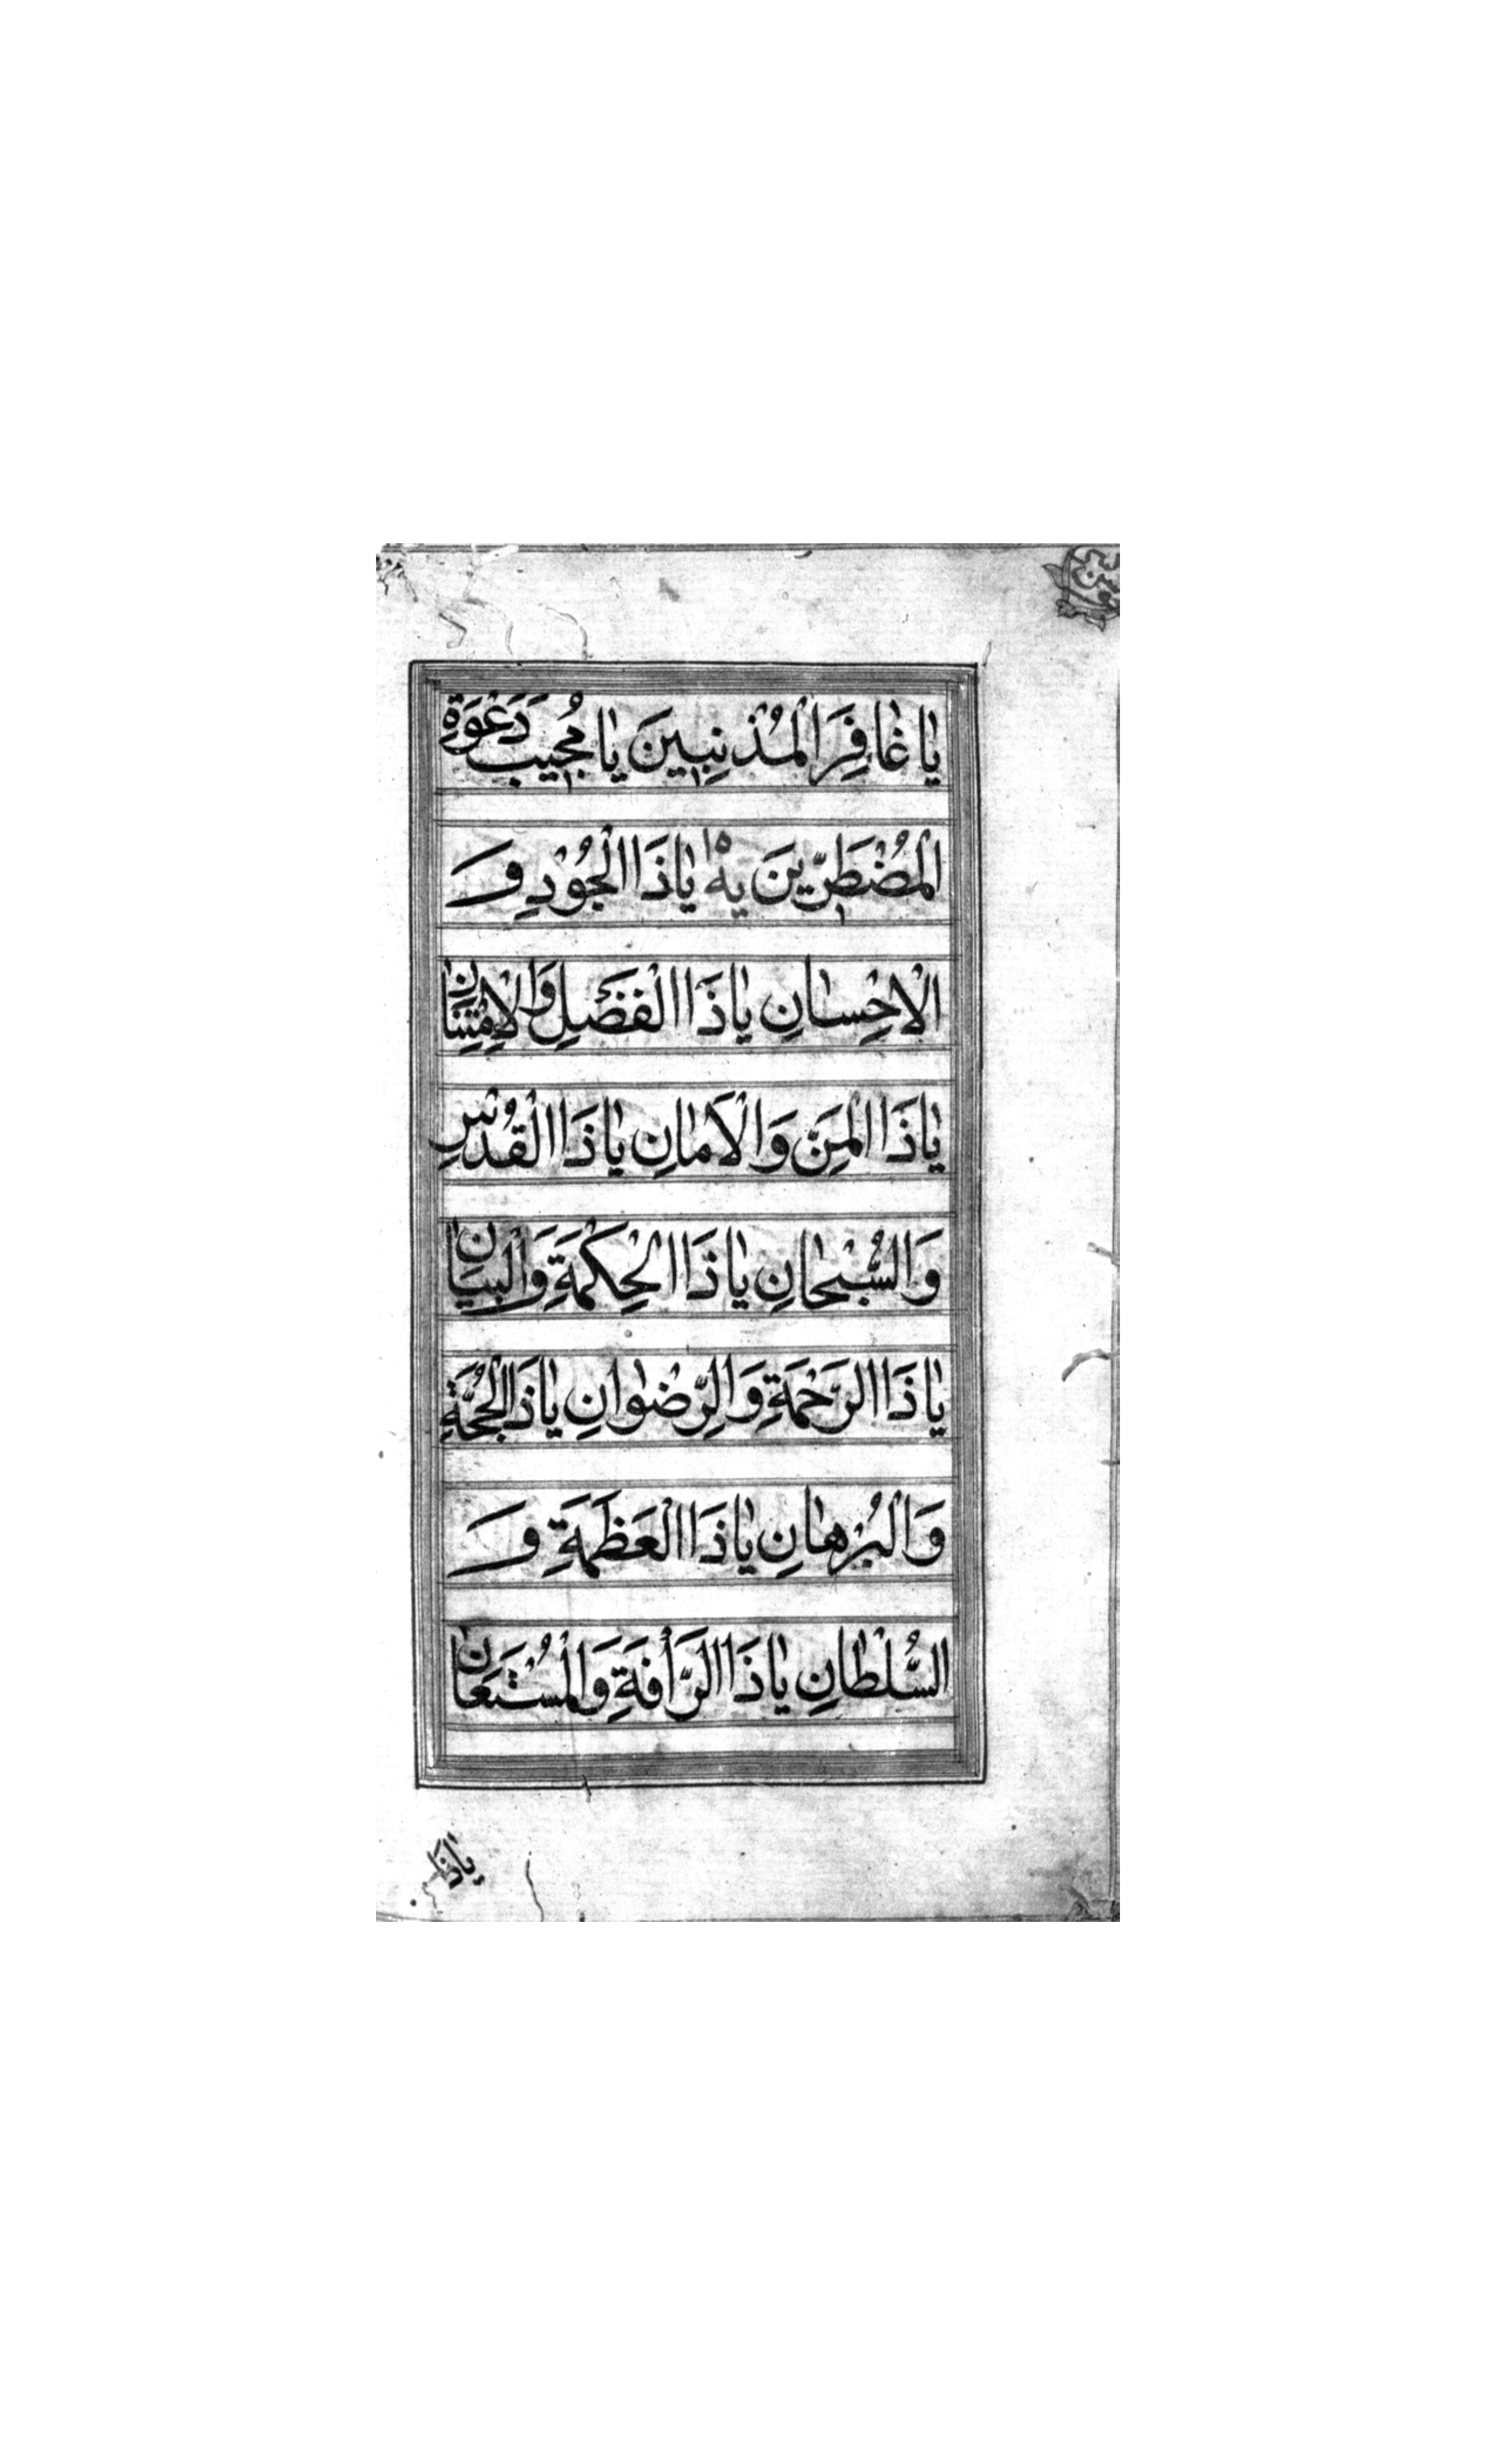 يٰا غٰافِرَ الْمُذْنِبِينَ يٰا مُجِيبَ دَعْوَةِ
الْمُضْطَرِّينَ يه يٰا ذَا الْجُوْدِ وَ
الْاِحْسٰانِ يٰا ذَا الْفَضْلِ وَالْاِمْتِنٰانِ
يٰا ذَا الْمَنِّ وَالْاَمٰانِ يٰا ذَا الْقُدْسِ
وَالسُّبْحٰانِ يٰا ذَا الْحِكْمَةِ وَالْبَيٰانِ
يٰا ذَا الرَّحْمَةِ وَالرِّضْوٰانِ يٰا ذَا الْحُجَّةِ
وَالْبُرْهٰانِ يٰا ذَا الْعَظَمَةِ وَ
السُّلْطٰانِ يٰا ذَا الرَّأْفَةِ وَالْمُسْتَعٰانِ
يا ذا